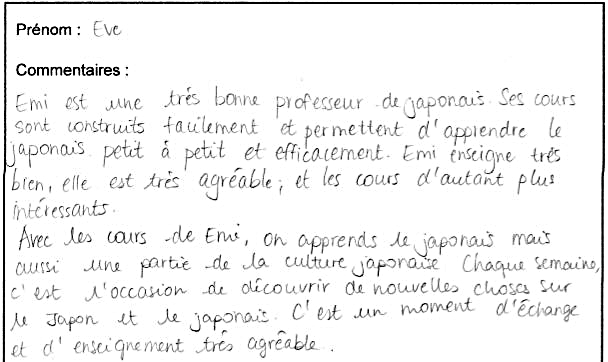 Prénom : Eve
Commentaires :
Emi est une très bonne professeur de japonais. Ses cours
sont construits facilement et permettent d'apprendre le
japonais petit à petit et efficacement. Emi enseigne très
bien, elle est très agréable, et les cours d'autant plus
intéressants.
Avec les cours de Emi, on apprends le japonais mais
aussi une partie de la culture japonaise Chaque semaine,
c'est l'occasion de découvrir de nouvelles choses sur
le Japon et le japonais. C'est un moment d'échange
et d'enseignement très agréable.